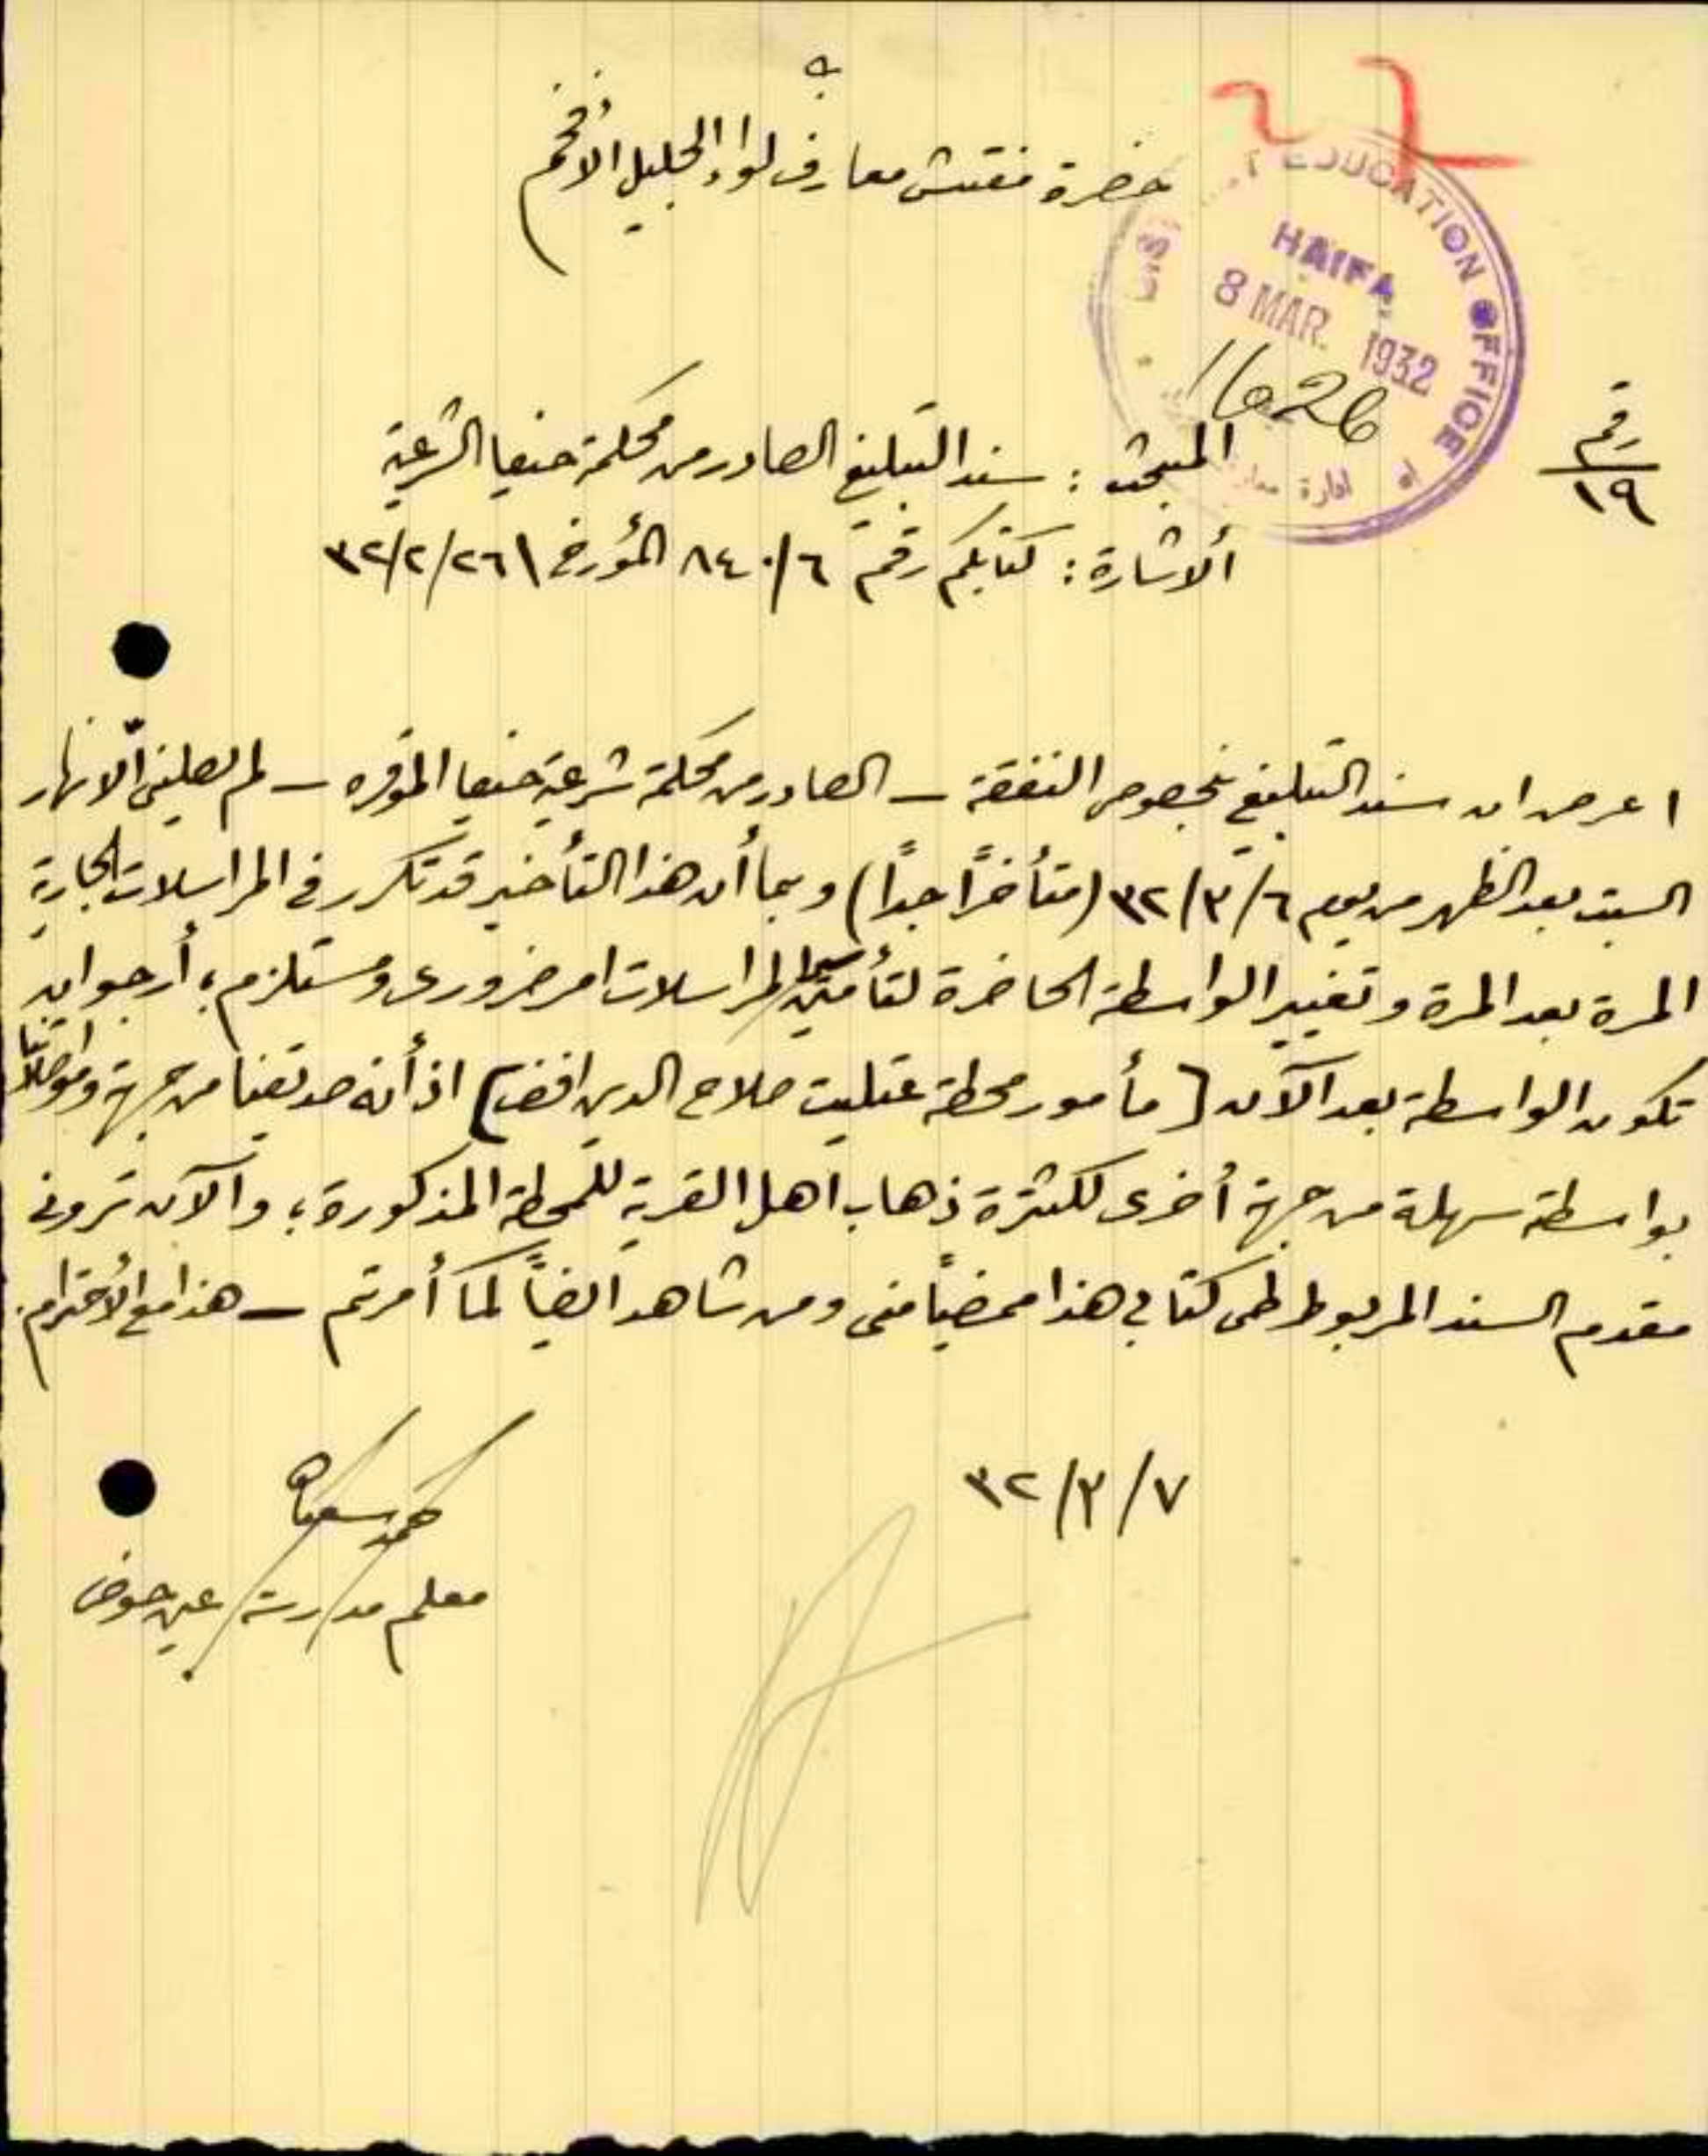 حضرة مفتش معارف لواء الجليل الأفخم
EDUCATION OFFICE
HAIFA
8 MAR. 1932
1626
ادارة معارف
رقم
١٩
المبحث : سند التبليغ الصادر من محكمة حيفا الشرعية
ألاشارة : كتابكم رقم ٨٤٠/٦ المؤرخ ٣٢/٢/٢٦
اعرض ان سند التبليغ بخصوص النفقة – الصادر من محكمة شرعية حيفا الموقره – لم يصلني الّا نهار
السبت بعد الظهر من يوم ٣٢/٣/٦ (متأخرًا جدًا) وبما أن هذا التأخير قد تكرر في المراسلات الجارية
المرة بعد المرة وتغيير الواسطة الحاضرة لتأمين المراسلات امر ضرورى ومستلزم ، أرجو ان
تكون الواسطة بعد الآن [ مأمور محطة عتليت صلاح الدين افندى ] اذ أنه صديقنا من جهة
بواسطة سهلة من جهة أخرى لكثرة ذهاب اهل القرية للمحطة المذكورة ، والآن ترونى
مقدم السند المربوط طى كتابي هذا ممضيًا منى ومن شاهد ايضًا كما أمرتم – هذا مع الأحترام .
٣٢/٣/٧
معلم مدرسة عين حوض